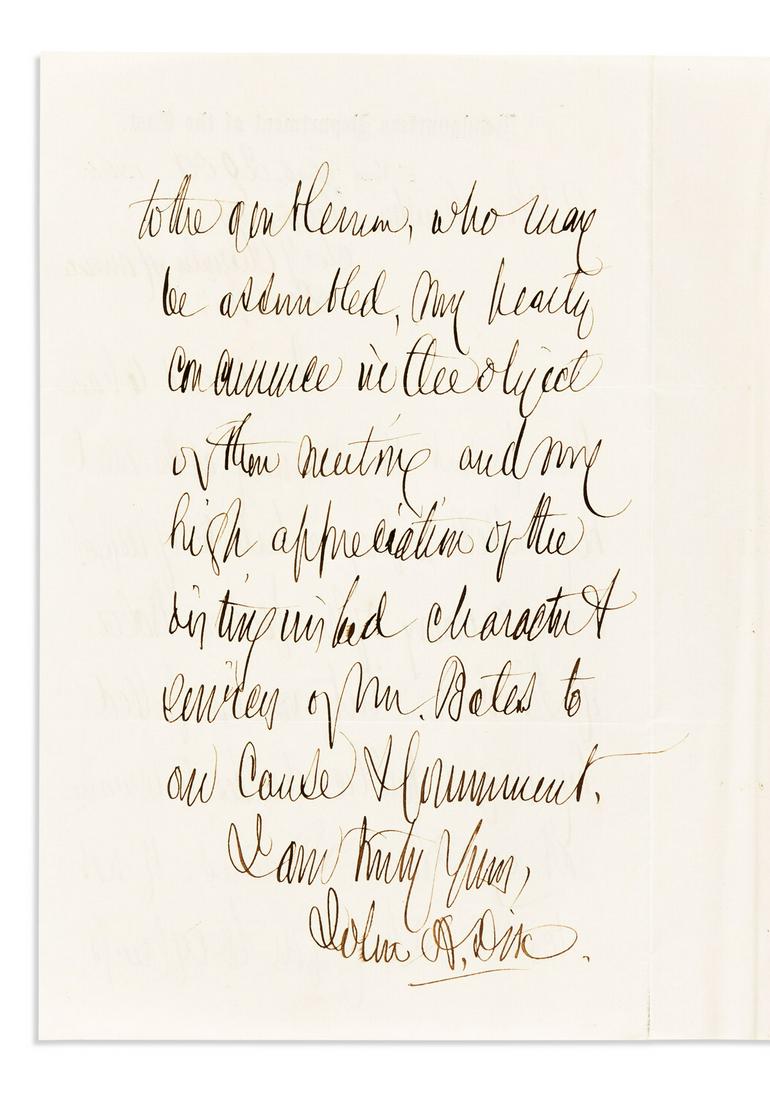 to the gentlemen, who may
be assembled, my hearty
concurrence in the object
of their meeting and my
high appreciation of the
distinguished character &
services of Mr. Bates to
our Cause & Government.
I am truly Yours,
John A. Dix.